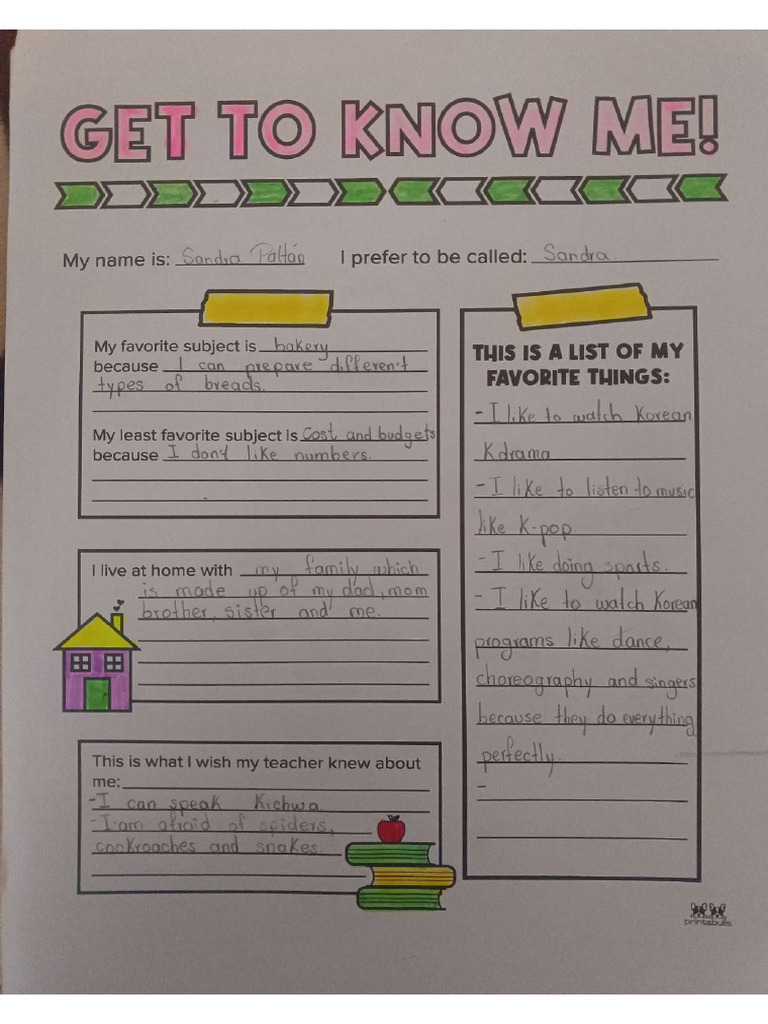 GET TO KNOW ME!
My name is: Sandra Paltán I prefer to be called: Sandra
My favorite subject is bakery
because I can prepare different
types of breads.
My least favorite subject is Cost and budgets
because I dont like numbers.
I live at home with my family which
is made up of my dad, mom
brother, sister and me.
This is what I wish my teacher knew about
me:
-I can speak Kichwa
-I'am afraid of spiders,
cockroaches and snakes.
THIS IS A LIST OF MY
FAVORITE THINGS:
-I like to watch Korean
Kdrama
-I like to listen to music
like K-pop
-I like doing sports.
-I like to watch Korean
programs like dance,
choreography and singers
because they do everything
perfectly.
-
printabulls